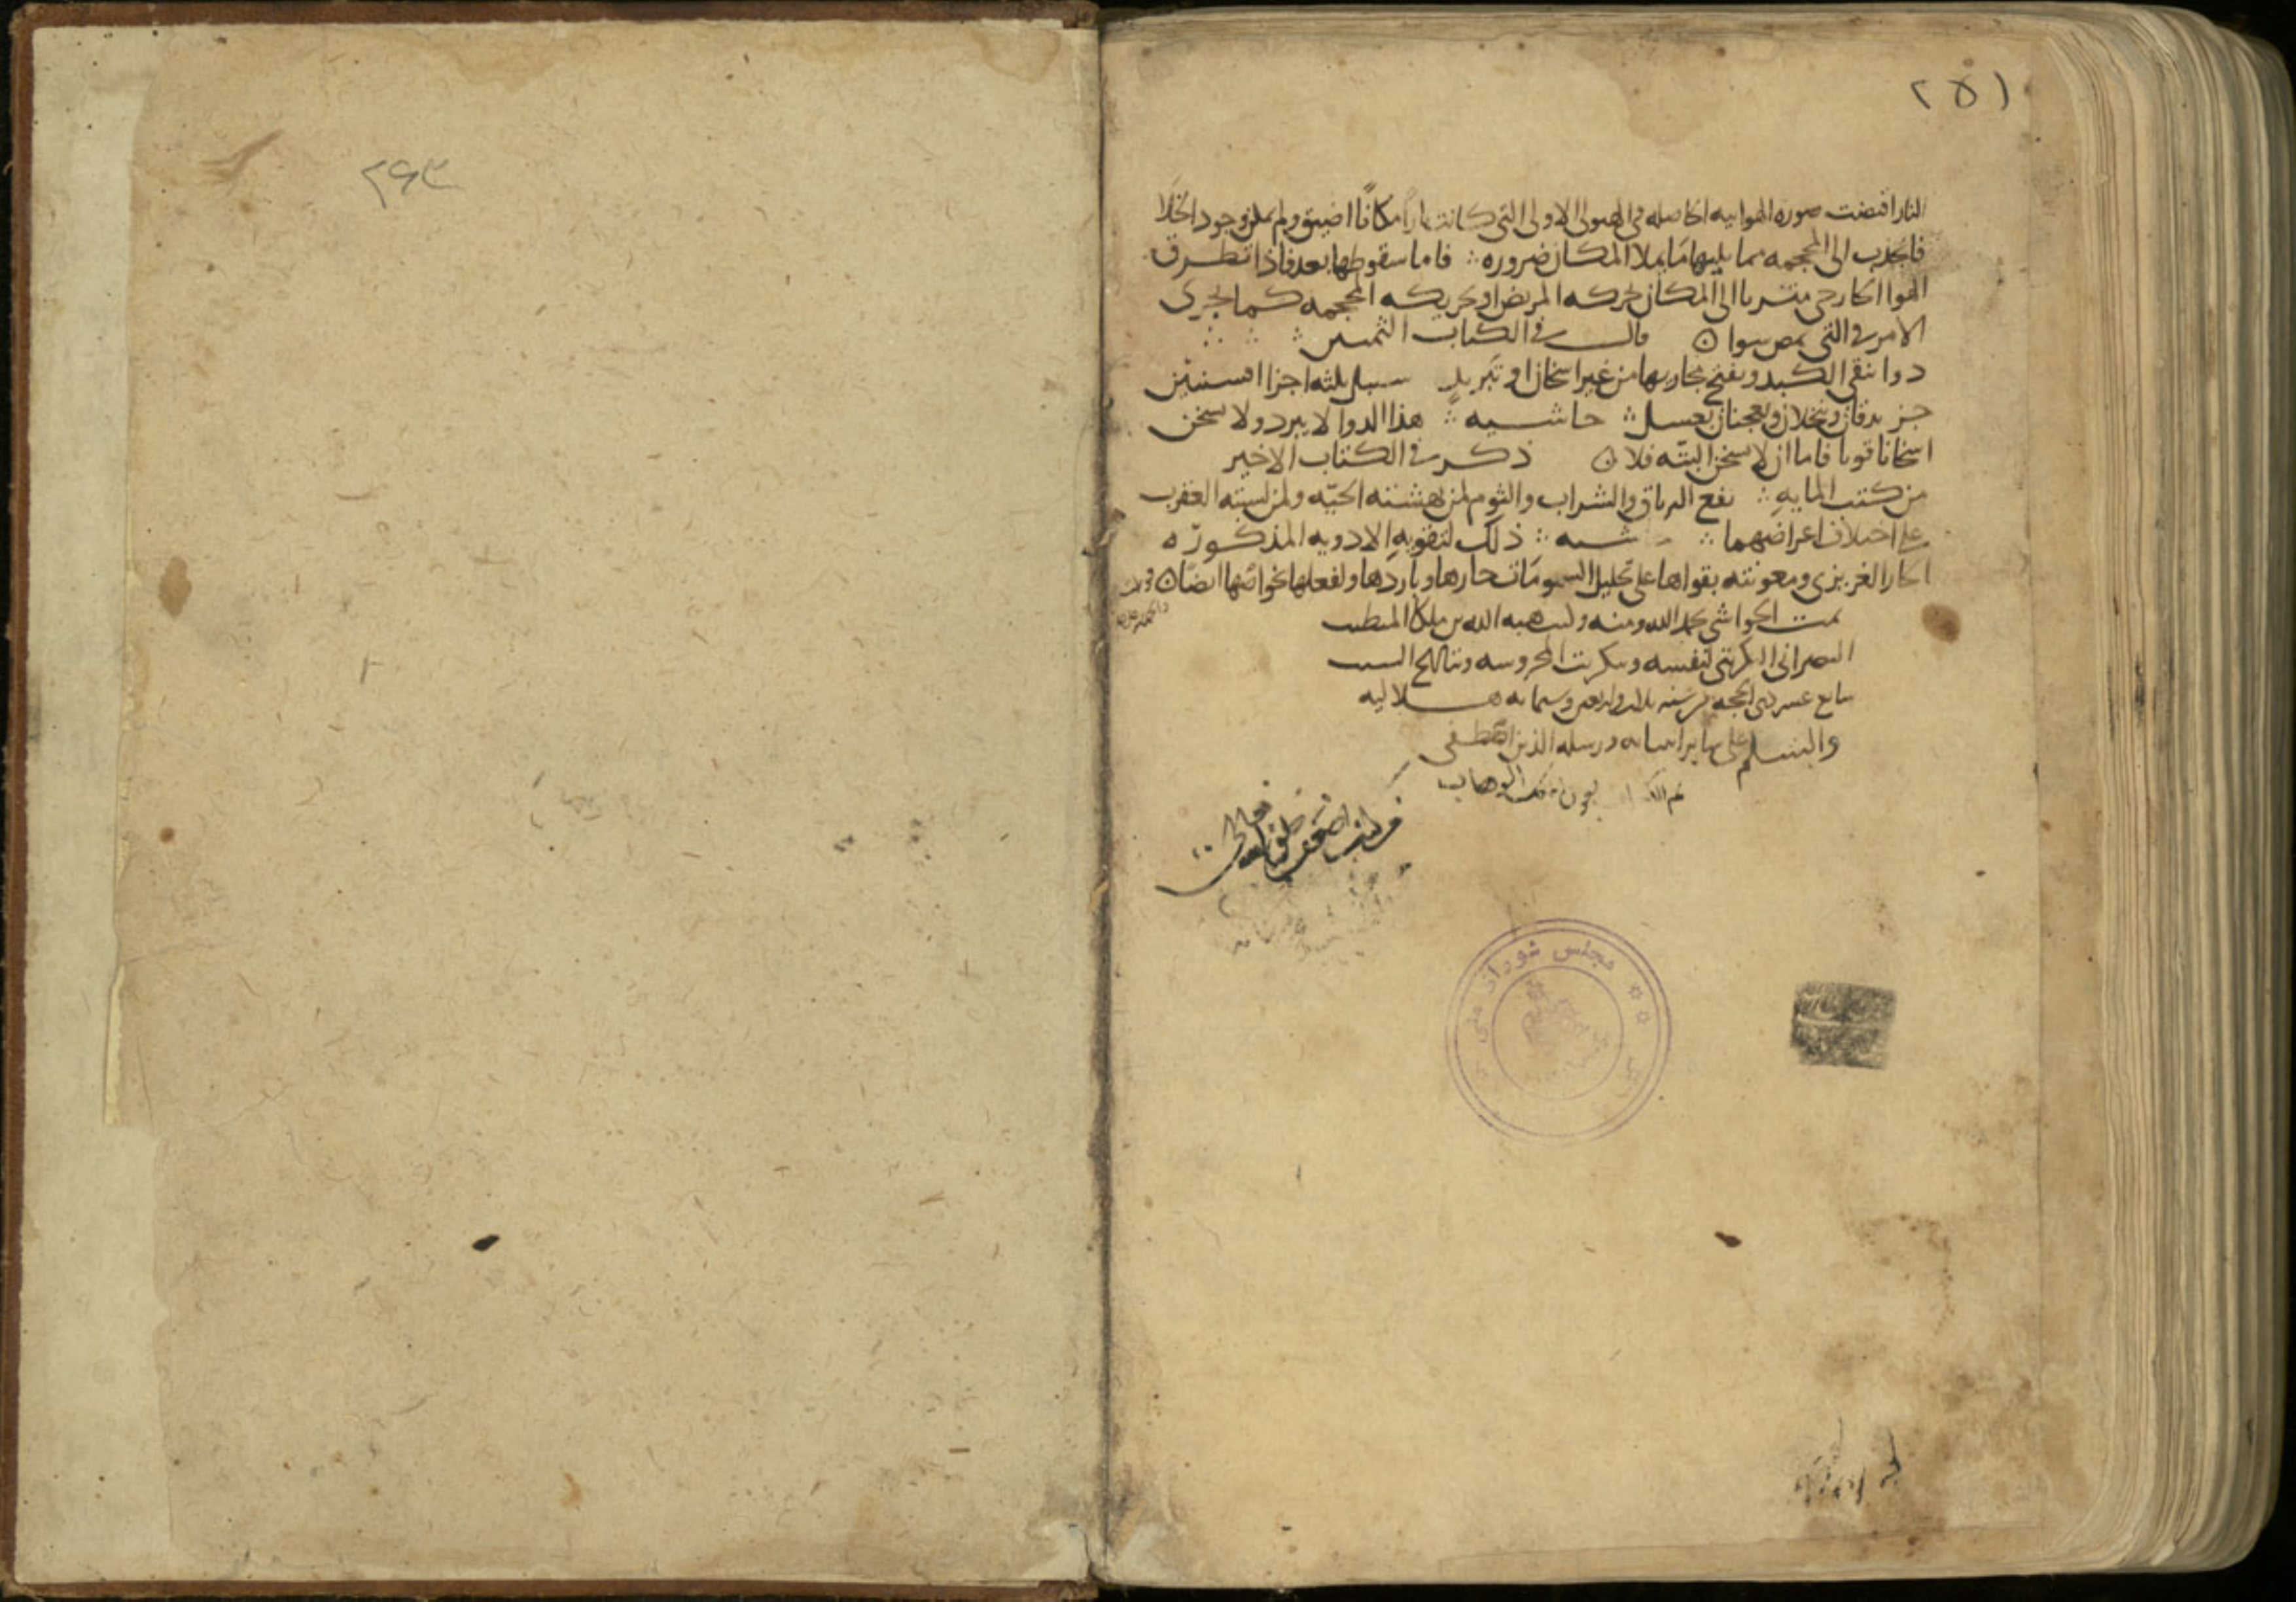 ٢٥١
النار اقتضت صوره الهوائيه الحاصله فى الهيولى الاولى التى كانت نارا مكانًا اضيق ولم يمكن وجود الخلا
فانجذب الى المحجمه مما يليها ما يملا المكان ضروره ∴ فاما سقوطها بعد فاذا تطرق
الهوا الخارجى متسربا الى المكان لحركه المريض او تحريكه المحجمه كما يجرى
الامر فى التى بمص سوا ن قال فى الكتاب
دوا ينقى الكبد ويفتح مجاريها من غير اسخان او تبريد سنبل ثلثه اجزا افسنتين
جز يدقان وينخلان ويعجنان بعسل ∴ حاشيه ∴ هذا الدوا لا يبرد ولا يسخن
اسخانا قويا فاما ان لا يسخن البته فلا ن ذكر فى الكتاب الاخير
من كتب المايه ∴ نفع الترياق والشراب والثوم لمن نهشته الحيّه ولمن لسبته العقرب
على اختلاف اعراضهما ∴ حاشيه ∴ ذلك لتقويه الادويه المذكوره
الحار الغريزى ومعونته بقواها على تحليل السمومات حارها وباردها ولفعلها بخواصّها ايضًا ن
تمت الحواشى بحمد الله ومنه وكتب هبه الله بن ملكا المتطبب
النصرانى التكريتى لنفسه وبتكريت المحروسه وبتاريخ السبت
سابع عشر ذى الحجه من سنه ثلث واربعين وستمايه هلاليه
والتسليم على ساير انبيائه ورسله الذين اصطفى
تم الكتاب بعون الملك الوهاب
مجلس شورای ملی
٢٦٣